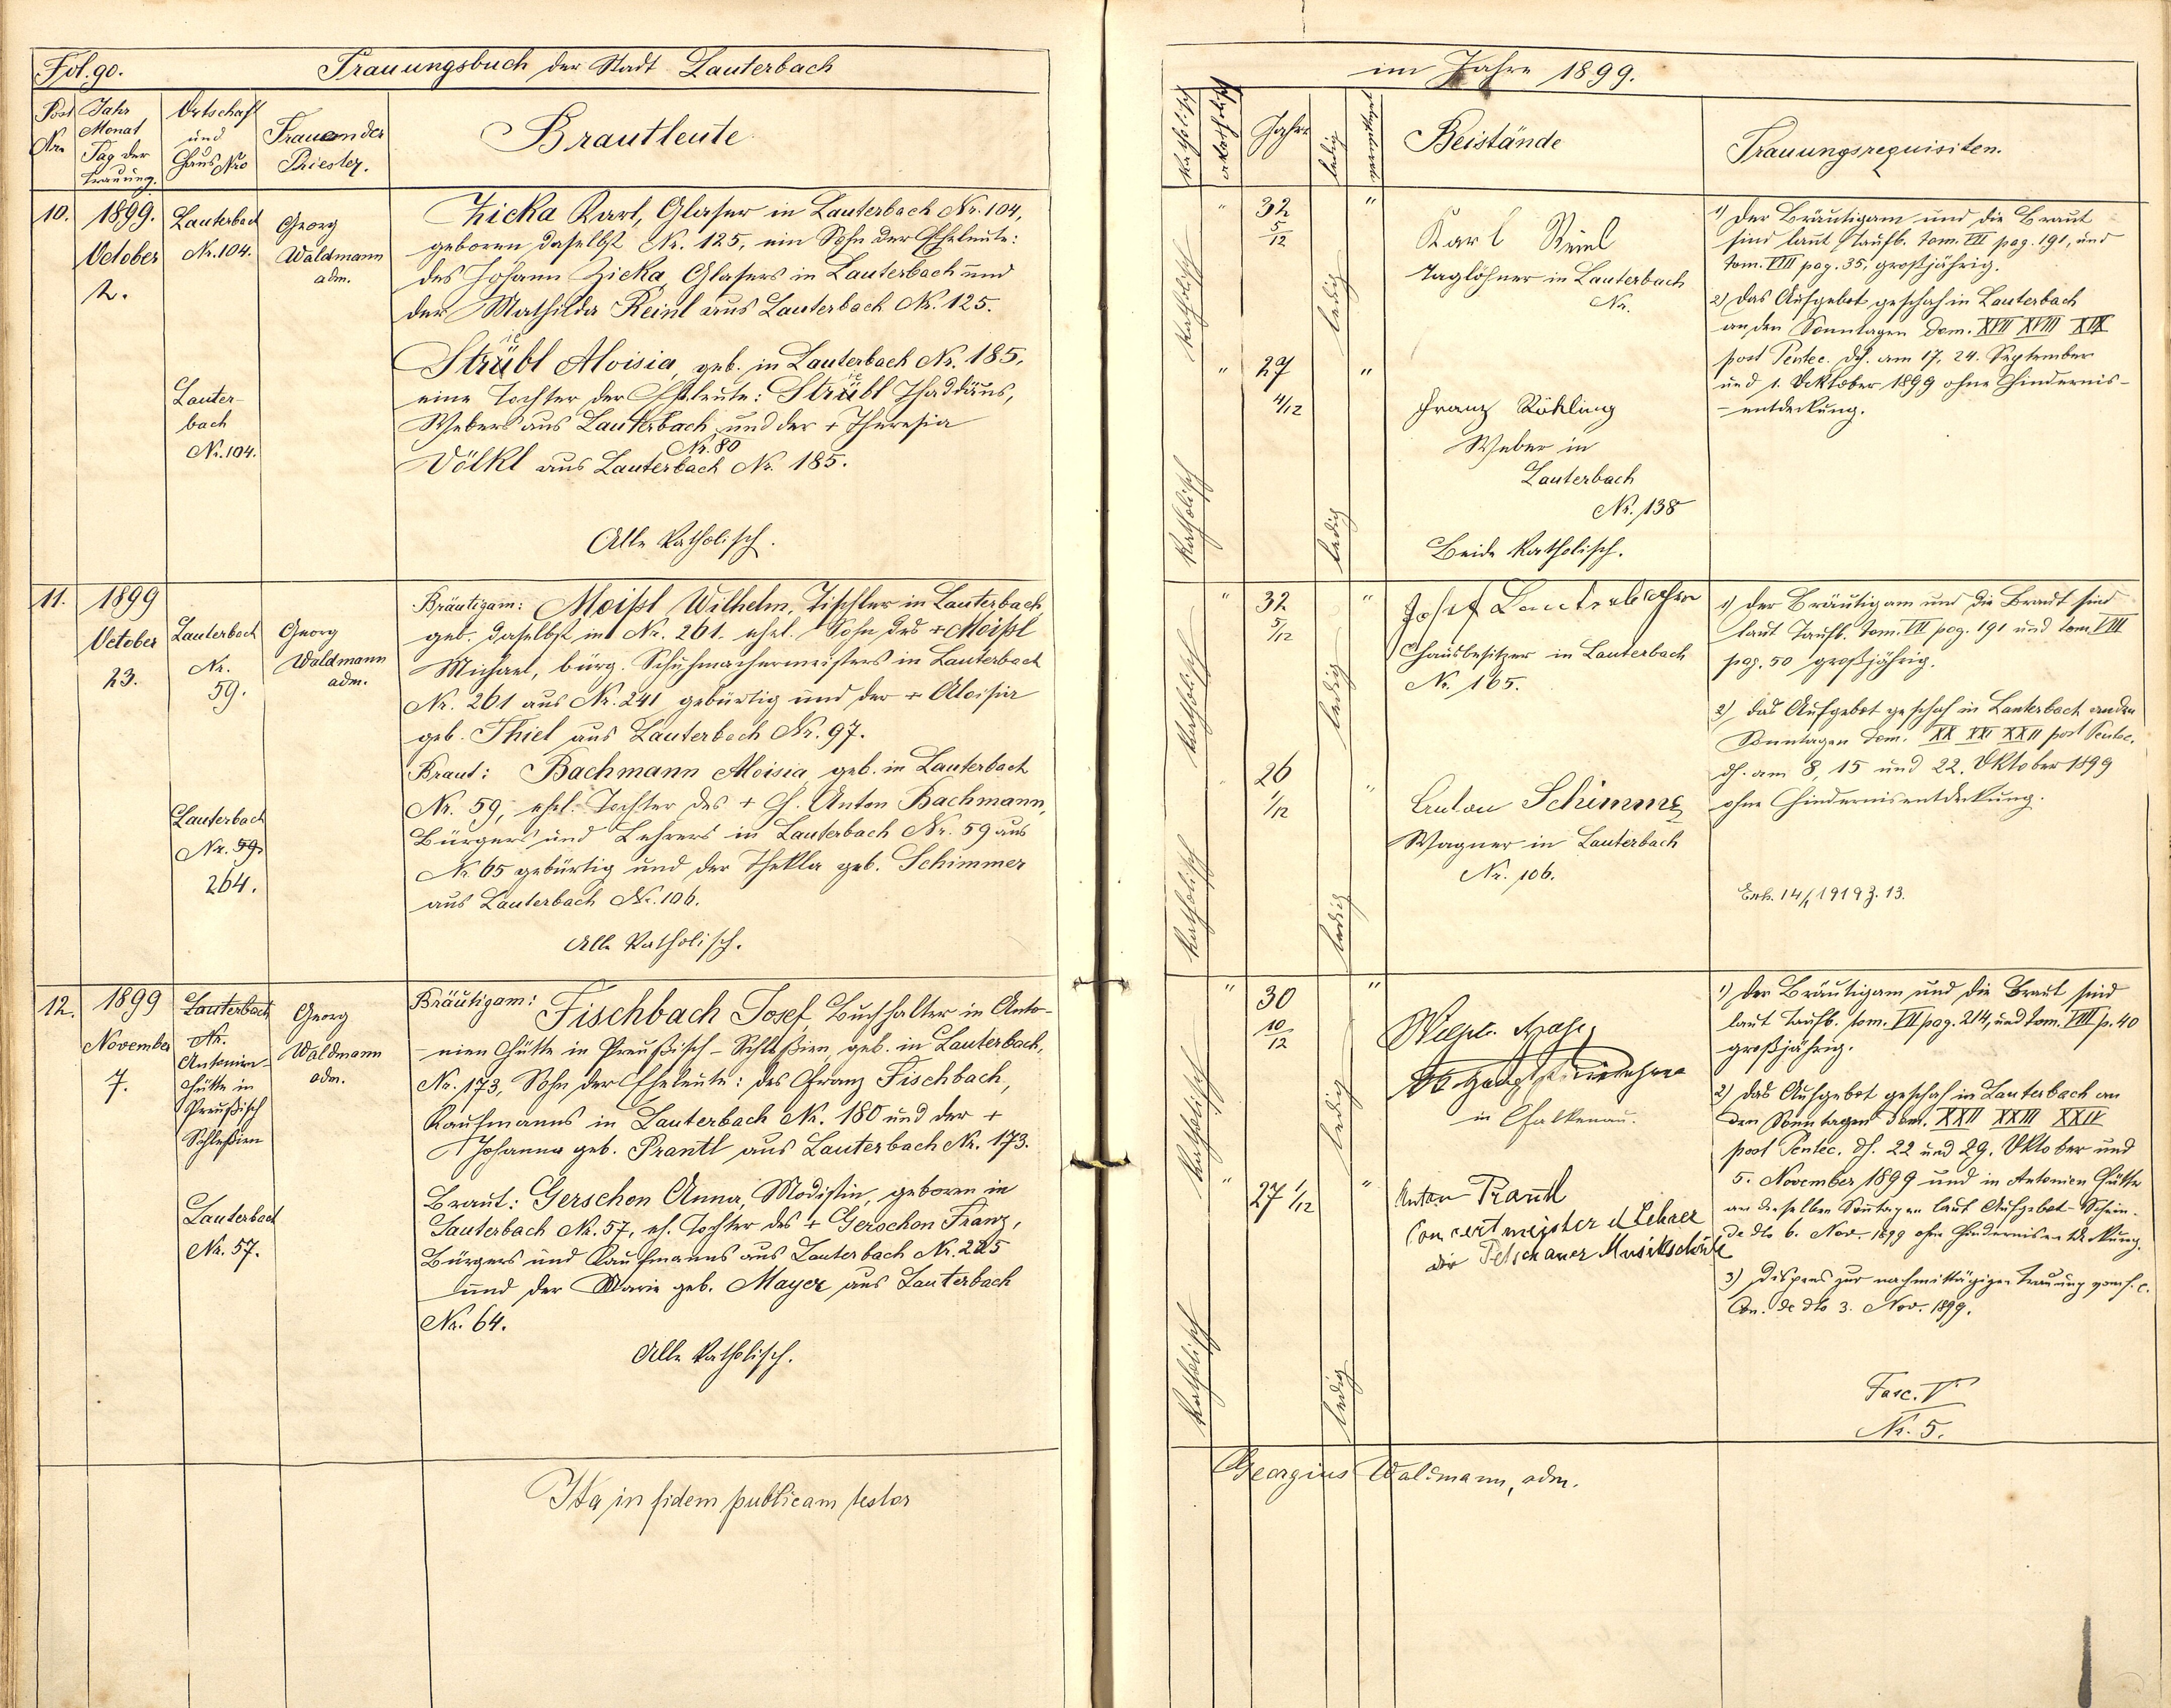 Fol. 90.
Trauungsbuch der Stadt Lauterbach
Post Nro
Jahr Monat Tag der Trauung.
Ortschaft und Haus Nro
Trauender Priester.
Brautleute
10.
1899. October 2.
Lauterbach Nr. 104.
Georg Waldmann adm.
Zicka Karl, Glaser in Lauterbach Nr. 104,
geboren daselbst Nr. 125, ein Sohn der Eheleute:
des Johann Zicka, Glasers in Lauterbach und
der Mathilda Reinl aus Lauterbach Nr. 125.
Lauter-
bach
Nr. 104.
Strübl Aloisia, geb. in Lauterbach Nr. 185,
eine Tochter der Eheleute: Strübl Thaddäus,
Webers aus Lauterbach und der + Theresia
Nr. 80
Völkl aus Lauterbach Nr. 185.
Alle katholisch.
11.
1899 October 23.
Lauterbach Nr. 59.
Georg Waldmann adm.
Bräutigam: Moißl Wilhelm, Tischler in Lauterbach,
geb. daselbst in Nr. 261. ehel. Sohn des + Moißl
Michael, bürg. Schuhmachermeisters in Lauterbach
Nr. 261 aus Nr. 241 gebürtig und der + Aloisia
geb. Thiel aus Lauterbach Nr. 97.
Lauterbach
Nr. 59.
264.
Braut: Bachmann Aloisia, geb. in Lauterbach
Nr. 59, ehel. Tochter des + H. Anton Bachmann,
Bürgers und Lehrers in Lauterbach Nr. 59 aus
Nr. 65 gebürtig und der Thekla geb. Schimmer
aus Lauterbach Nr. 106.
Alle katholisch.
12.
1899 November 7.
Lauterbach
Nr.
Antonien-
hütte in
Preußisch
Schlesien
Georg Waldmann adm.
Bräutigam: Fischbach Josef, Buchhalter in Anto-
-nien Hütte in Preußisch-Schlesien, geb. in Lauterbach,
Nr. 173, Sohn der Eheleute: des Franz Fischbach,
Kaufmanns in Lauterbach Nr. 180 und der +
Johanna geb. Prantl aus Lauterbach Nr. 173.
Lauterbach
Nr. 57.
Braut: Gerschon Anna, Modistin, geboren in
Lauterbach Nr. 57, eh. Tochter des + Gerschon Franz,
Bürgers und Kaufmanns aus Lauterbach Nr. 225
und der Marie geb. Mayer aus Lauterbach
Nr. 64.
Alle katholisch.
Ita in fidem publicam testor
im Jahre 1899.
Katholisch
akatholisch
Jahre
ledig
Beistände
Trauungsrequisiten.
katholisch " 32 5/12 ledig "
Karl Reinl
Taglöhner in Lauterbach
Nr.
katholisch " 27 4/12 ledig "
Franz Röhling
Weber in
Lauterbach
Nr. 138
Beide katholisch.
1) Der Bräutigam und die Braut
sind laut Taufb. tom. VII pag. 191, und
tom. VIII pag. 35, großjährig.
2) Das Aufgebot geschah in Lauterbach
an den Sonntagen Dom. XVII XVIII XIX
post Pentec. dh. am 17. 24. September
und 1. Oktober 1899 ohne Hindernis-
-entdeckung.
katholisch " 32 5/12 ledig "
Josef Lauterbacher
Hausbesitzer in Lauterbach
Nr. 165.
katholisch 26 1/12 ledig "
Anton Schimmer
Wagner in Lauterbach
Nr. 106.
1) Der Bräutigam und die Braut sind
laut Taufb. tom. VII pag. 191 und tom. VIII
pag. 50 großjährig.
2) Das Aufgebot geschah in Lauterbach an den
Sonntagen Dom. XX XXI XXII post Pentec.
dh. am 8, 15 und 22. Oktober 1899
ohne Hindernisentdeckung.
14/1 1919 Z. 13.
katholisch " 30 10/12 ledig "
in Falkenau.
katholisch " 27 1/12 ledig "
Anton Prantl
Concertmeister u Lehrer
der Petschauer Musikschule
1) Der Bräutigam und die Braut sind
laut Taufb. tom. VII pag. 214, und tom. VIII p. 40
großjährig.
2) Das Aufgebot geschah in Lauterbach an
den Sonntagen Dom. XXII XXIII XXIV
post Pentec. dh. 22 und 29. Oktober und
5. November 1899 und in Antonien Hütte
an denselben Sonntagen laut Aufgebot-Schein
de dto 6. Nov. 1899 ohne Hindernisentdeckung.
3) Dispens zur nachmittägigen Trauung vom f. e.
Con. de dto 3. Nov. 1899.
Fasc. V
Nr. 5.
Georgius Waldmann, adm.